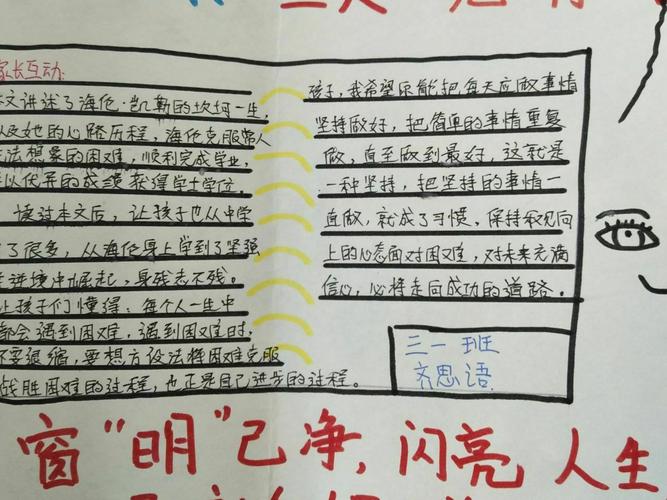 家长互动:
文讲述了海伦·凯斯的坎坷一生,
及她的心路历程,海伦克服常人
法想象的困难,顺利完成学业,
以优异的成绩获得学士学位。
读过本文后,让孩子也从中学
了很多,从海伦身上学到了坚强
逆境中崛起,身残志不残。
让孩子们懂得:每个人一生中
都会遇到困难,遇到困难时,
不要退缩,要想方设法将困难克服
战胜困难的过程,也正是自己进步的过程。
孩子,我希望你能把每天应做事情
坚持做好,把简单的事情重复
做,直至做到最好,这就是
一种坚持,把坚持的事情一
直做,就成了习惯,保持积极向
上的心态面对困难,对未来充满
信心,必将走向成功的道路。
三一班
齐思语
窗“明”己净,闪亮人生